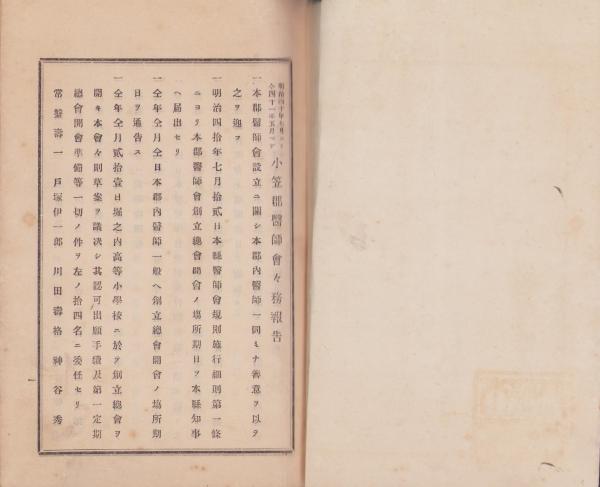 明治四十年七月ヨリ
仝四十一年五月マデ
小笠郡醫師會々務報告
一本郡醫師會設立ニ關シ本郡内醫師一同ミナ善意ヲ以テ
之ヲ迎フ
一明治四拾年七月拾貳日本縣醫師會規則施行細則第一條
ニヨリ本郡醫師會創立總會開會ノ塲所期日ヲ本縣知事
ヘ届出セリ
一仝年仝月仝日本郡内醫師一般ヘ創立總會開會ノ塲所期
日ヲ通告ス
一仝年仝月貳拾壹日堀之内高等小學校ニ於テ創立總會ヲ
開キ本會々則草案ヲ議决シ其認可出願手續及第一定期
總會開會準備等一切ノ件ヲ左ノ拾四名ニ委任セリ
常盤壽一 戸塚伊一郎 川田壽格 神谷秀
一